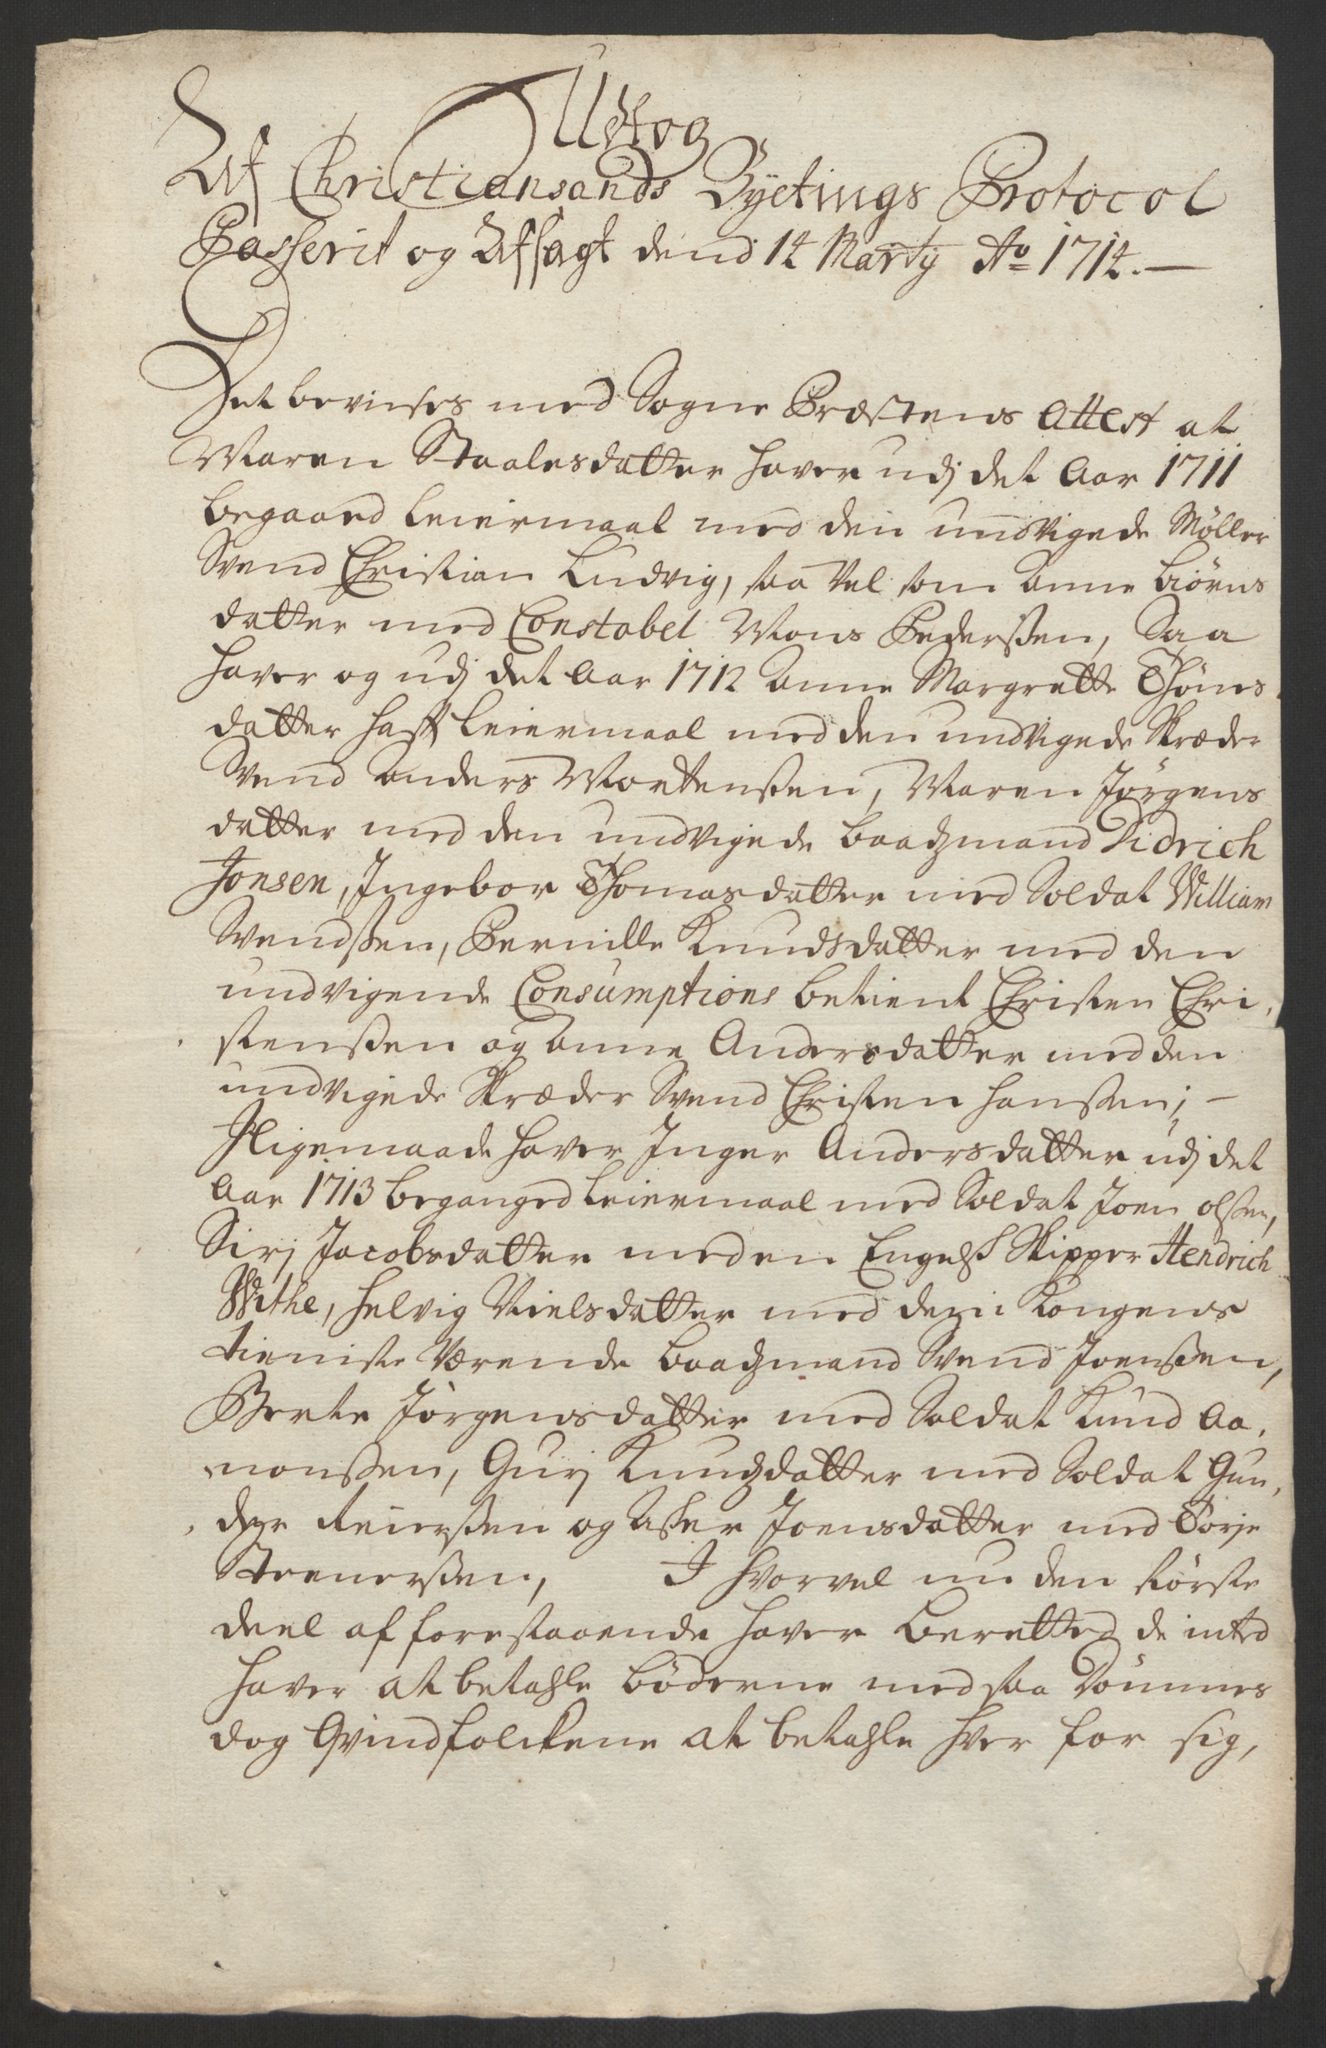 Udtog
Af Christiansands Byetings Protocol
Passerit og Afsagt dend 14 Marty Ao 1714.
Det bevises med Sogne Præstens Attest at
Maren Staalesdatter haver udj det Aar 1711
begaaed Leiermaal med den undvigede Møller
Svend Christian Ludvig, saa vel som Anne Biørns
datter med Constabel Mons Pederssen, Saa
haver og udj det Aar 1712 Anne Margrette Thønes
datter hafft Leiermaal med den undvigede Skræder
Svend Anders Mortenssen, Maren Jørgens
datter med den undvigede Baadzmand Didrich
Jonsen, Ingebor Thomasdatter med Soldat William
Svendssen, Pernille Knudsdatter med den
undvigende Consumptions betient Christen Chri,
stenssen og Anne Andersdatter med den
undvigede Skræder Svend Christen Hanssen; -
Jligemaade haver Inger Andersdatter udj det
Aar 1713 beganged Leiermaal med Soldat Joen olssen,
Sirj Jacobsdatter med en Engelsk Skipper Hendrich
Withe, Helvig Nielsdatter med den i Kongens
tieniste Værende Baadzmand Svend Joenssen,
Berte Jørgensdatter med Soldat Knud Aa,
monssen, Gurj Knudzdatter med Soldat Gun,
der Reierssen og Asser Joensdatter med Torje
Steenerssen, J hvorvel nu den største
deel af forestaaende haver Beretted de inted
haver at betahle bøderne med saa Dømmes
dog Qvindfolckene at betahle hver for sig,